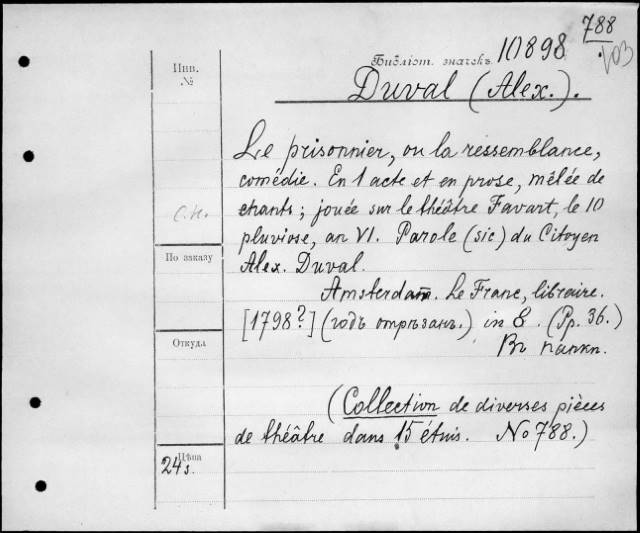 788
103
Библіот. значекъ 10898
Инв.
№
Duval (Alex.).
Le prisonnier, ou la ressemblance,
comédie. En 1 acte et en prose, mêlée de
chants; jouée sur le théâtre Favart, le 10
pluviose, an VI. Parole (sic) du Citoyen
Alex. Duval.
Amsterdam. Le Franc, libraire.
[1798?] (годъ отрѣзанъ.) in 8. (Pp. 36.)
Въ папкѣ.
(Collection de diverses pièces
de théâtre dans 15 étuis. No 788.)
С.н.
По заказу
Откуда
Цѣна
24 s.